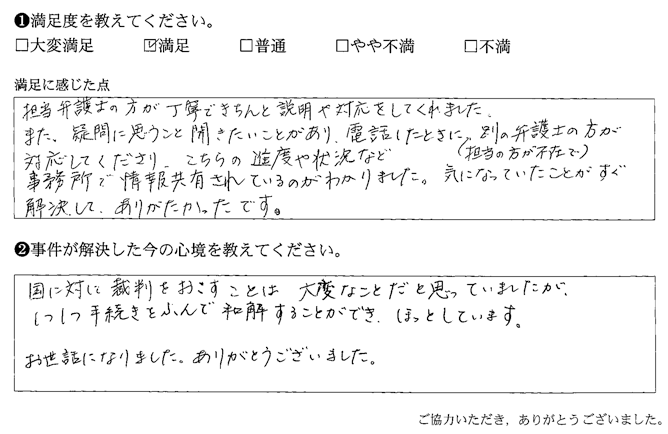 ❶満足度を教えてください。
□大変満足 ☑満足 □普通 □やや不満 □不満
満足に感じた点
担当弁護士の方が丁寧できちんと説明や対応をしてくれました。
また、疑問に思うこと聞きたいことがあり、電話したときに、別の弁護士の方が
(担当の方が不在で)
対応してくださり、こちらの進度や状況など
事務所で情報共有されているのがわかりました。気になっていたことがすぐ
解決して、ありがたかったです。
❷事件が解決した今の心境を教えてください。
国に対して裁判をおこすことは大変なことだと思っていましたが、
1つ1つ手続きをふんで和解することができ、ほっとしています。
お世話になりました。ありがとうございました。
ご協力いただき、ありがとうございました。